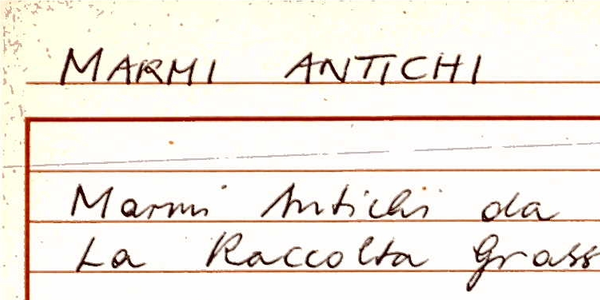 MARMI ANTICHI
Marmi Antichi da
La Raccolta Grass